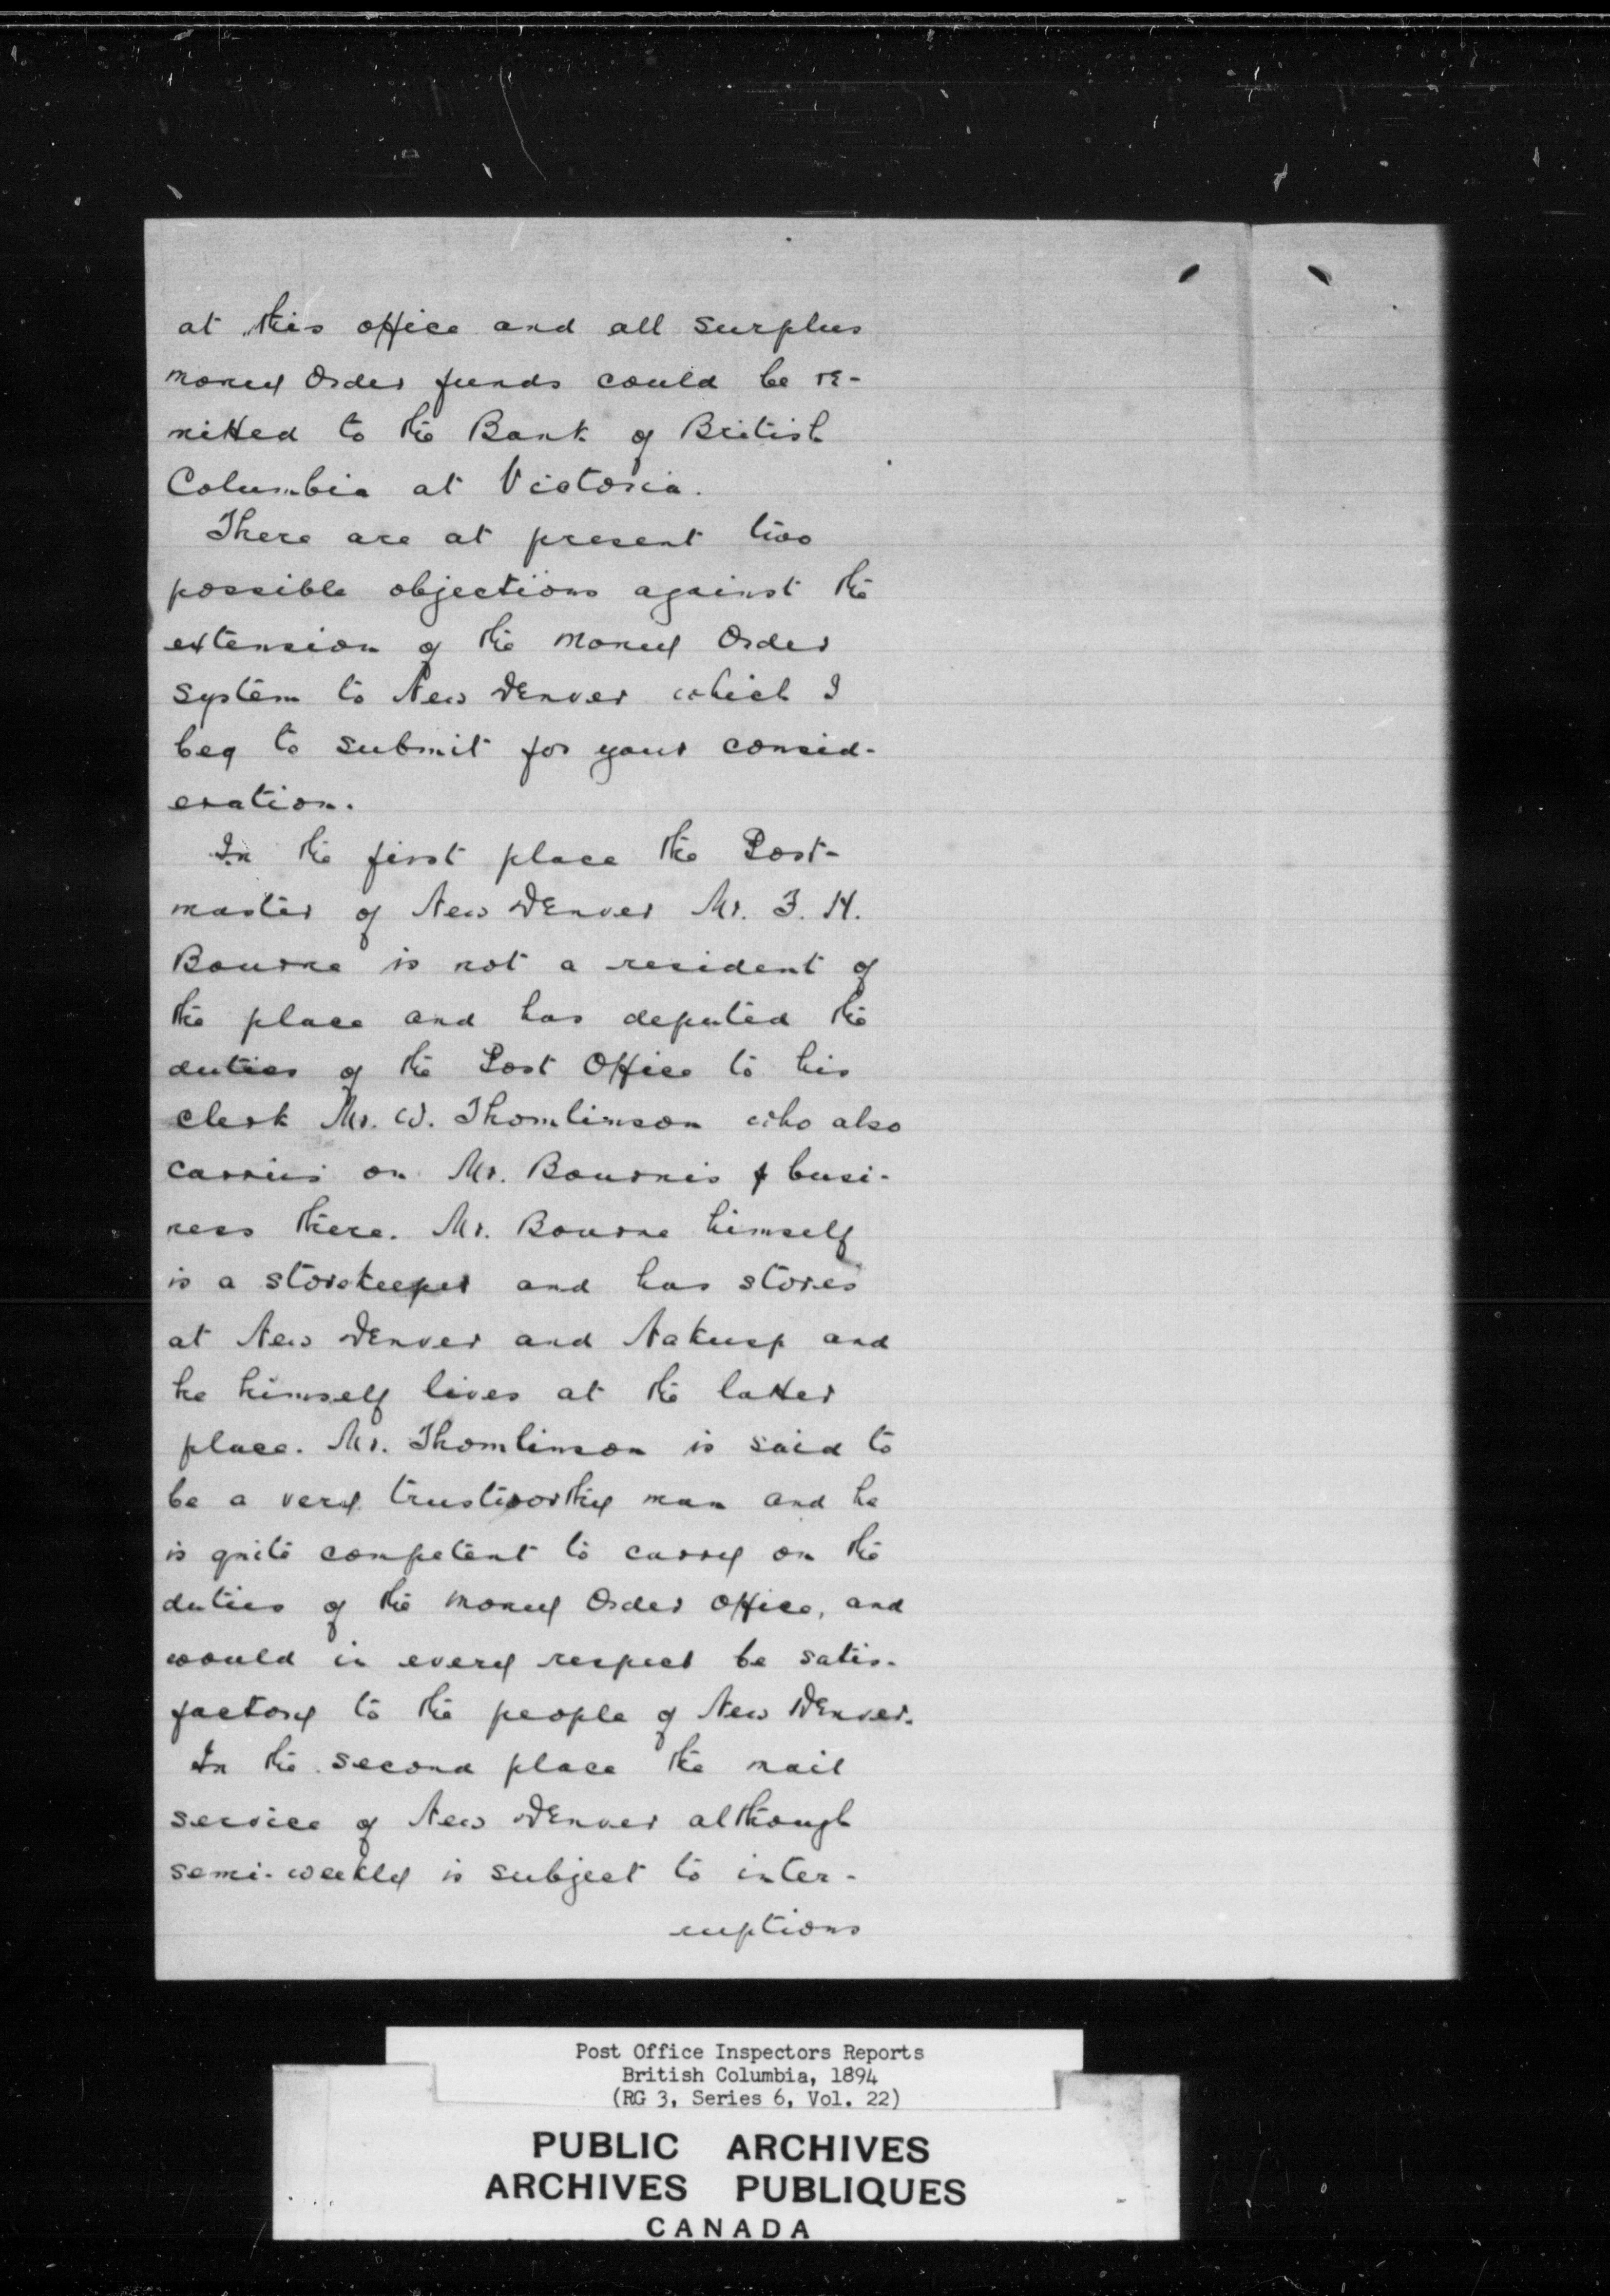 at this office and all surplus
Money Order funds could be re-
mitted to the Bank of British
Columbia at Victoria.
There are at present two
possible objections against the
extension of the Money Order
system to New Denver which I
beg to submit for your consid-
eration.
In the first place the Post-
master of New Denver Mr. F. H.
Bourne is not a resident of
the place and has deputed the
duties of the Post Office to his
clerk Mr. W. Thomlinson who also
carries on Mr. Bourne's busi-
ness there. Mr. Bourne himself
is a storekeeper and has stores
at New Denver and Nakusp and
he himself lives at the latter
place. Mr. Thomlinson is said to
be a very trustworthy man and he
is quite competent to carry on the
duties of the Money Order Office, and
would in every respect be satis-
factory to the people of New Denver.
In the second place the mail
service of New Denver although
semi-weekly is subject to inter-
ruptions
Post Office Inspectors Reports
British Columbia, 1894
(RG 3, Series 6, Vol. 22)
PUBLIC ARCHIVES
ARCHIVES PUBLIQUES
CANADA